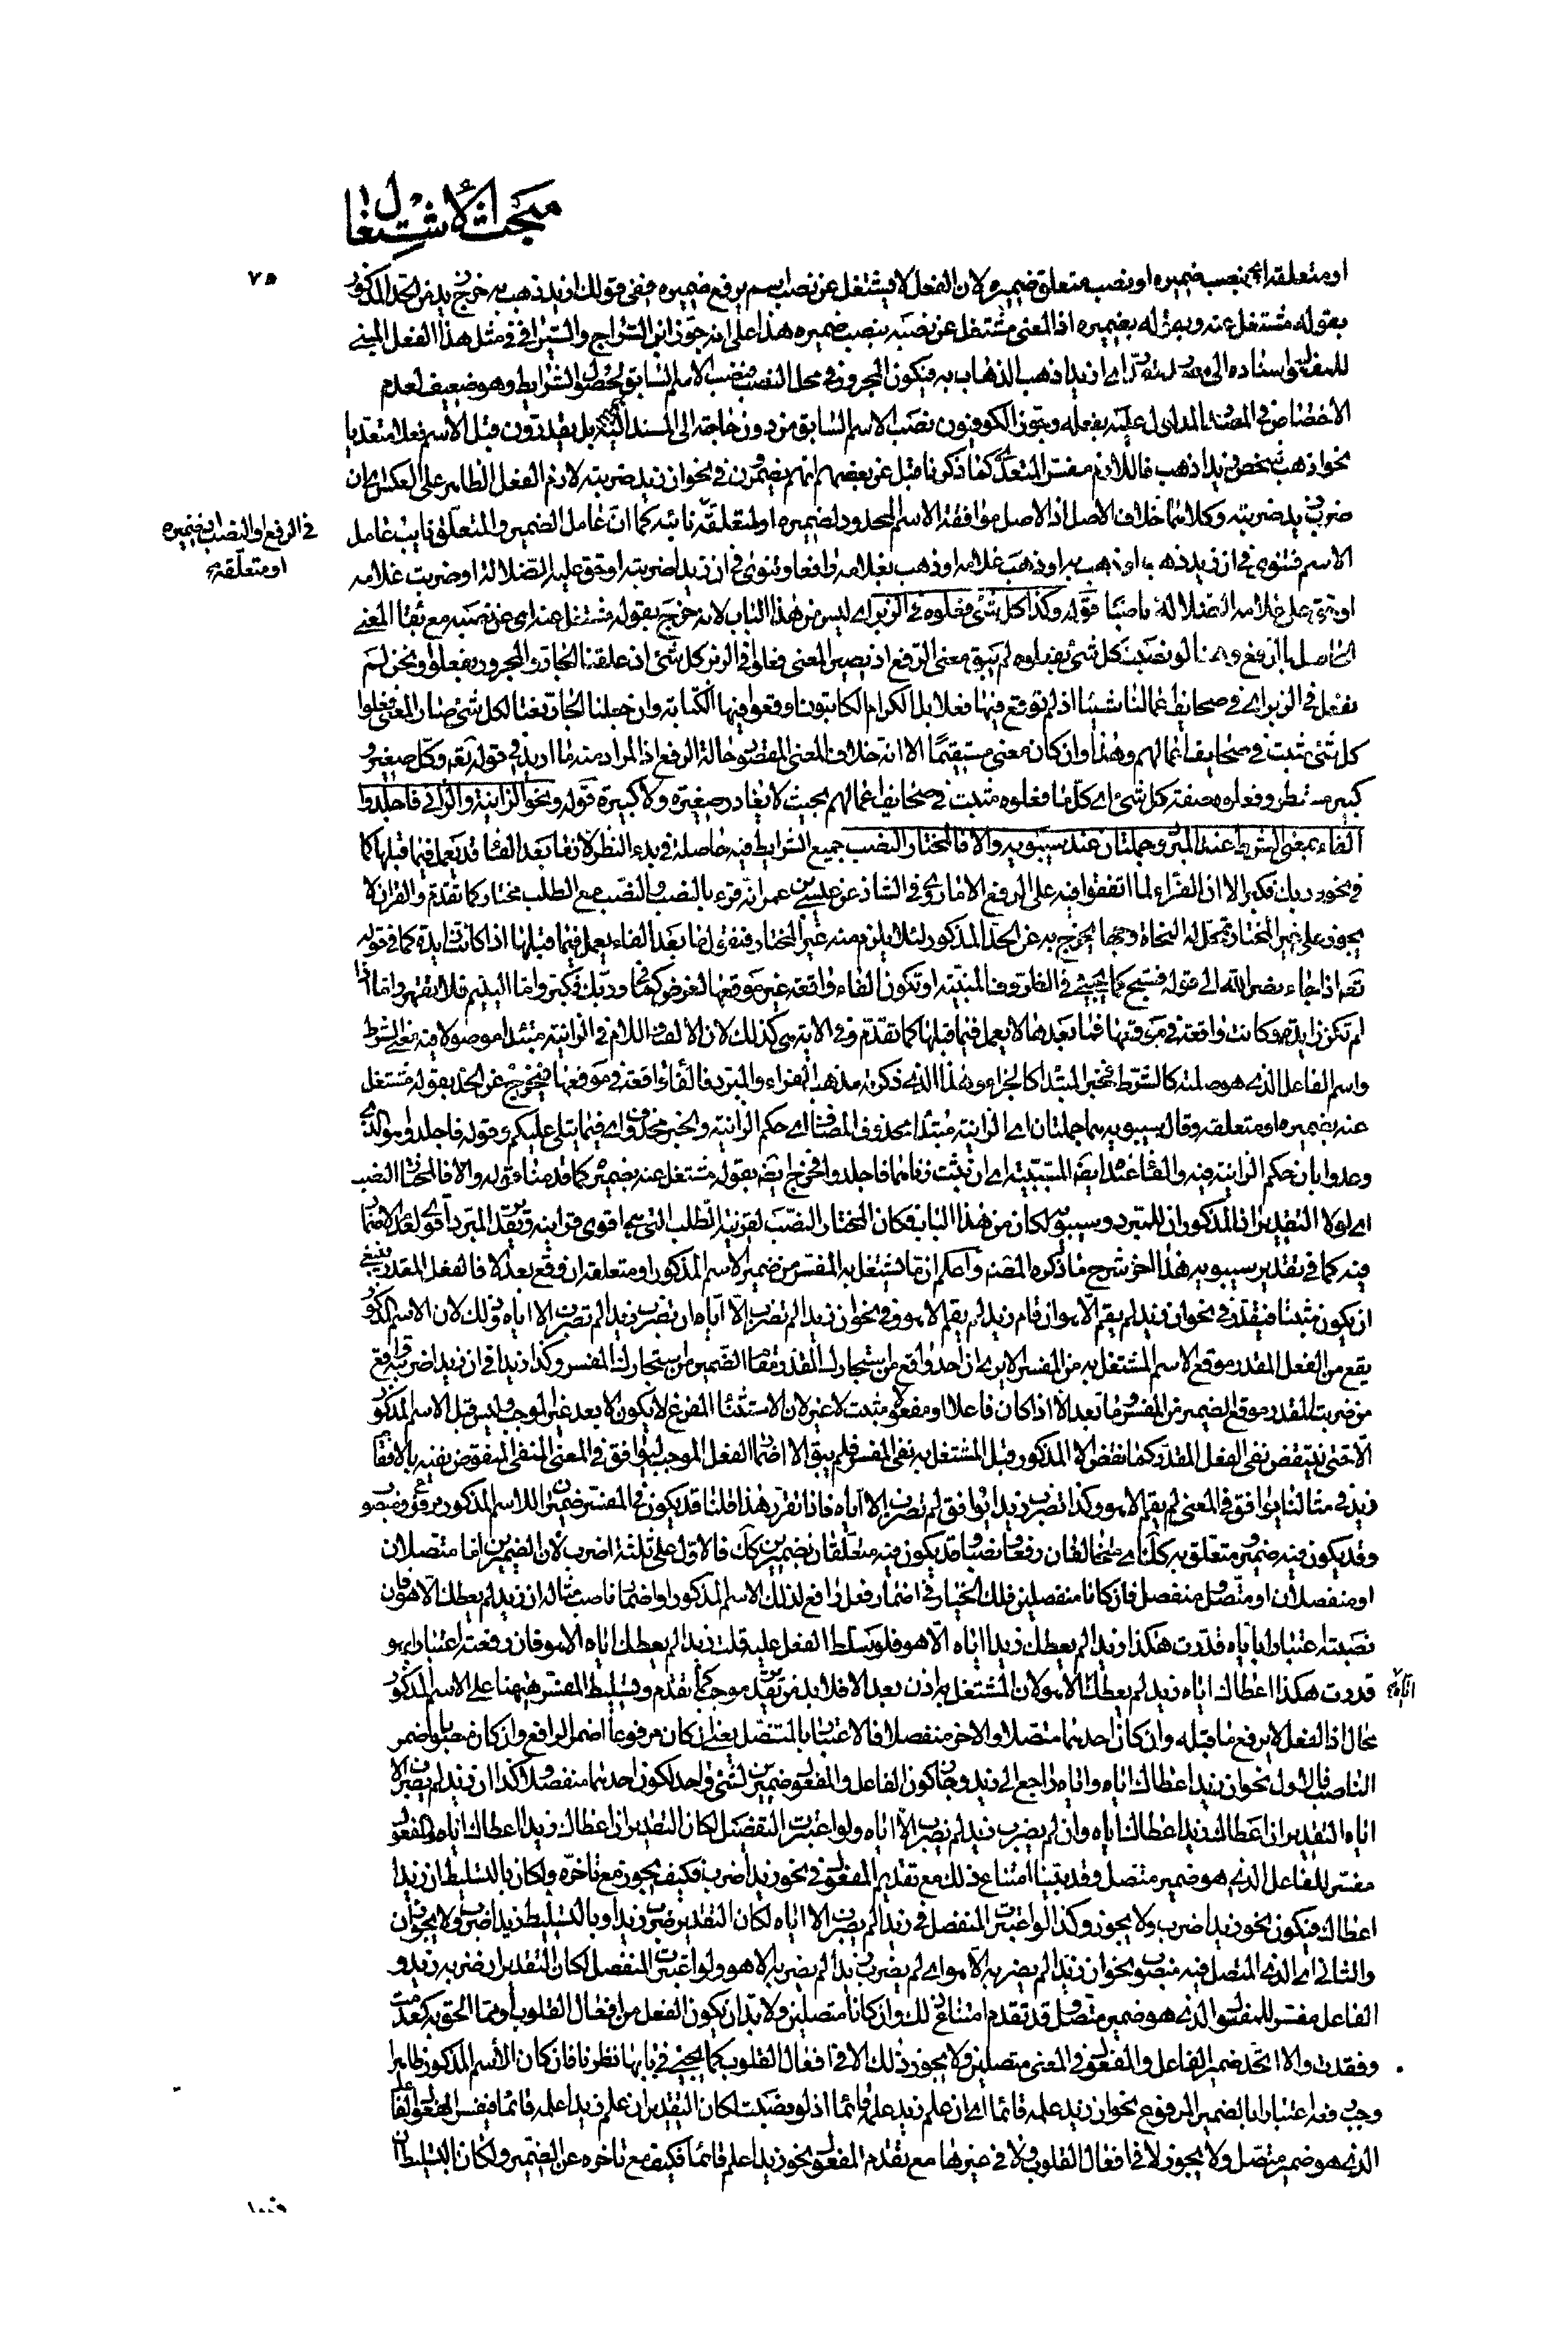 مبحث الاشتغال
٧٥
او متعلقه اى بنصب ضميره او نصب متعلق ضميره لان الفعل لا يشتغل عن نصب اسم برفع ضميره ففى قولك ازيد ذهب به خرج زيد من الحد المذكور
بقوله مشتغل عنه وبقوله بضميره اذ المعنى مشتغل عن نصبه بنصب ضميره هذا على انه جوز ابن السراج والسيرافى فى مثل هذا الفعل المبنى
للمفعول اسناده الى اى ازيدا ذهب الذهاب به فيكون المجرور فى محل النصب فينصب الاسم السابق لحصول الشرايط وهو ضعيف لعدم
الاختصاص فى المصدر المدلول عليه بفعله وجوز الكوفيون نصب الاسم السابق من دون حاجة الى المسند اليه بل يقدرون قبل الاسم فعلا متعديا
نحو اذهب شخص زيدا ذهب فاللازم مفسر المتعدى كما ذكرنا قبل عن بعضهم انهم يضمرون فى نحو ان زيد ضربته لازم الفعل الظاهر على العكس اى ان
ضرب زيد ضربته وكلاهما خلاف الاصل اذ الاصل موافقة الاسم المحدود لضميره او لمتعلقه نائبه كما ان عامل الضمير والمتعلق نايب عامل
فى الرفع او النصب بضميره
او متعلقه
الاسم فتنوى فى ان زيد ذهب او ذهب به او ذهب غلامه او ذهب بغلامه رافعا وتنوى فى ان زيدا ضربته او حق عليه الضلالة او ضربت غلامه
او حق على غلامه الضلالة ناصبا قوله وكذا كل شئ فعلوه فى الزبر اى ليس من هذا الباب لانه خرج بقوله مشتغل عنه اى عن نصبه مع بقاء المعنى
الحاصل بالرفع وهنا لو نصبت كل شئ بفعلوه لم يبق معنى الرفع اذ يصير المعنى فعلوا فى الزبر كل شئ ان علقنا الجار والمجرور بفعلوا ونحن لم
نفعل فى الزبر اى فى صحايف اعمالنا شيئا اذ لم نوقع فيها فعلا بل الكرام الكاتبون اوقعوا فيها الكتابة وان جعلنا الجار نعتا لكل شئ صار المعنى فعلوا
كل شئ مثبت فى صحايف اعمالهم وهذا وان كان معنى مستقيما الا انه خلاف المعنى المقصود حالة الرفع اذ المراد منه ما اريد فى قوله تعه وكل صغير و
كبير مستطر وفعلوه صفة كل شئ اى كل ما فعلوه مثبت فى صحائف اعمالهم بحيث لا يغادر صغيرة ولا كبيرة قوله ونحو الزانية والزانى فاجلدوا
الفاء بمعنى الشرط عند المبرد وجملتان عند سيبويه والا فالمختار النصب جميع الشرايط فيه حاصلة فى بدء النظر لان ما بعد الفاء قد يعمل فيما قبلها كما
فى نحو وربك فكبر الا ان القراء لما اتفقوا فيه على الرفع الا ما روى فى الشاذ عن عيسى بن عمر انه قرء بالنصب والنصب مع الطلب مختار كما تقدم والقران لا
يجوز على غير المختار تمحل له النحاة وجها يخرج به عن الحد المذكور لئلا يلزم منه غير المختار فنقول انما بعد الفاء يعمل فيما قبلها اذا كانت زايدة كما فى قوله
تعه اذا جاء نصر الله الى قوله فسبح كما يجيئ فى الظروف المبنية او تكون الفاء واقعة غير موقعها لغرض كما فى وربك فكبر واما اليتيم فلا تقهر واما اذا
لم تكن زايدة وكانت واقعة فى موقعها فما بعدها لا يعمل فيما قبلها كما تقدم وفى الاية هى كذلك لان الالف واللام فى الزانية مبتدأ موصول فيه معنى الشرط
واسم الفاعل الذى هو صلته كالشرط فخبر المبتدأ كالجزاء وهذا الذى ذكرته مذهب الفراء والمبرد فالفاء واقعة فى موقعها فيخرج عن الحد بقوله مشتغل
عنه بضميره او متعلقه وقال سيبويه هما جملتان اى الزانية مبتدأ محذوف المضاف اى حكم الزانية والخبر محذوف اى فيما يتلى عليكم وقوله فاجلدوا هو الذى
وعدوا بان حكم الزانية فيه والفاء عنده ايضه للسببية اى ان ثبت زناهما فاجلدوا فخرج ايضه بقوله مشتغل عنه بضميره كما قدمنا قوله والا فالمختار النصب
اى لولا التقديران المذكوران للمبرد وسيبويه لكان من هذا الباب فكان المختار النصب لقرينة الطلب التى هى اقوى قرائنه وتقدير المبرد اقوى لعدم الاضمار
فيه كما فى تقدير سيبويه هذا اخر شرح ما ذكره المصنف واعلم ان ما يشتغل به المفسر من ضمير الاسم المذكور او متعلقه ان وقع بعد الا فالفعل المقدر ينبغى
ان يكون مثبتا فيقدر فى نحو ان زيد لم يقم الا هو ان قام زيد لم يقم الا هو وفى نحو ان زيدا لم تضرب الا اياه ان تضرب زيدا لم تضرب الا اياه وذلك لان الاسم المذكور
يقع من الفعل المقدر موقع الاسم المشتغل به من المفسر الا يرى ان احد واقع من استجارك المقدر مقام الضمير من استجارك المفسر وكذا زيدا فى ان زيدا ضربته واقع
من ضربت المقدر موقع الضمير من المفسر وما بعد الا اذا كان فاعلا او مفعولا مثبت لا غير لان الاستثناء المفرغ لا يكون الا بعد غير الموجب وليس قبل الاسم المذكور
الا حتى ينتقض نفى الفعل المقدر كما نقض الا المذكور قبل المشتغل به نفى المفسر فلم يبق الا اضمار الفعل الموجب ليوافق فى المعنى المنفى المنقوض نفيه بالا فقام
زيد فى مثالنا يوافق فى المعنى لم يقم الا هو وكذا تضرب زيدا يوافق لم تضرب الا اياه فاذا تقرر هذا قلنا قد يكون فى المفسر ضميران للاسم المذكور مرفوع ومنصوب
وقد يكون فيه ضمير ومتعلق به كذلك اى متخالفان رفعا ونصبا وقد يكون فيه متعلقان بضميرين كك فالاول على ثلثة اضرب لان الضميرين اما متصلان
او منفصلان او متصل ومنفصل فان كانا منفصلين فلك الخيار فى اضمار فعل رافع لذلك الاسم المذكور او اضمار ناصب مثاله ان زيد لم يعطك الا هو فان
نصبته اعتبارا باياه قدرت هكذا ان زيدا لم يعطك زيدا اياه الا هو فلو سلط الفعل عليه قلت زيدا لم يعطك اياه الا هو فان رفعته اعتبارا بهو
قدرت هكذا اعطاك اياه زيد لم يعطك الا هو لان المشتغل به اذن بعد الا فلا بد من تقدير موجب كما تقدم وتسليط المفسر هيهنا على الاسم المذكور
اياه
محال اذ الفعل لا يرفع ما قبله وان كان احدهما متصلا والاخر منفصلا فالاعتبار بالمتصل يعنى ان كان مرفوعا اضمر الرافع وان كان منصوبا اضمر
الناصب فالاول نحو ان زيد اعطاك اياه واياه راجع الى زيد وجاز كون الفاعل والمفعول ضميرين لشئ واحد لكون احدهما منفصلا وكذا ان زيد لم يضرب الا
اياه التقدير ان اعطاك زيد اعطاك اياه وان لم يضرب زيد لم يضرب الا اياه ولو اعتبرت المنفصل لكان التقدير ان اعطاك زيدا اعطاك اياه والمفعول
مفسر للفاعل الذى هو ضمير متصل وقد بينا امتناع ذلك مع تقديم المفعول فى نحو زيدا ضرب فكيف يجوز مع تاخره ولكان بالتسليط ان زيدا
اعطاك فيكون نحو زيدا ضرب ولا يجوز وكذا لو اعتبرت المنفصل فى زيد لم يضرب الا اياه لكان التقدير ضرب زيدا وبالتسليط زيدا ضرب ولا يجوزان
والثانى اى الذى المتصل فيه منصوب نحو ان زيدا لم يضربه الا هو اى لم يضرب زيدا لم يضربه الا هو ولو اعتبرت المنفصل لكان التقدير ان ضربه زيد و
الفاعل مفسر للمفعول الذى هو ضمير متصل وقد تقدم امتناع ذلك وان كانا متصلين ولا بد ان يكون الفعل من افعال القلوب او مما الحق به كعدمت
وفقدت والا اتحد ضمير الفاعل والمفعول فى المعنى متصلين ولا يجوز ذلك الا فى افعال القلوب كما يجيئ فى بابها نظرنا فان كان الاسم المذكور ظاهرا
وجب رفعه اعتبارا بالضمير المرفوع نحو ان زيد علمه قائما اى ان علم زيد علمه قائما اذ لو نصبت لكان التقدير ان علم زيدا علمه قائما فيفسر المفعول الفاعل
الذى هو ضمير متصل ولا يجوز لا فى افعال القلوب ولا فى غيرها مع تقدم المفعول نحو زيدا علم قائما فكيف مع تاخره عن الضمير ولكان بالتسليط ان